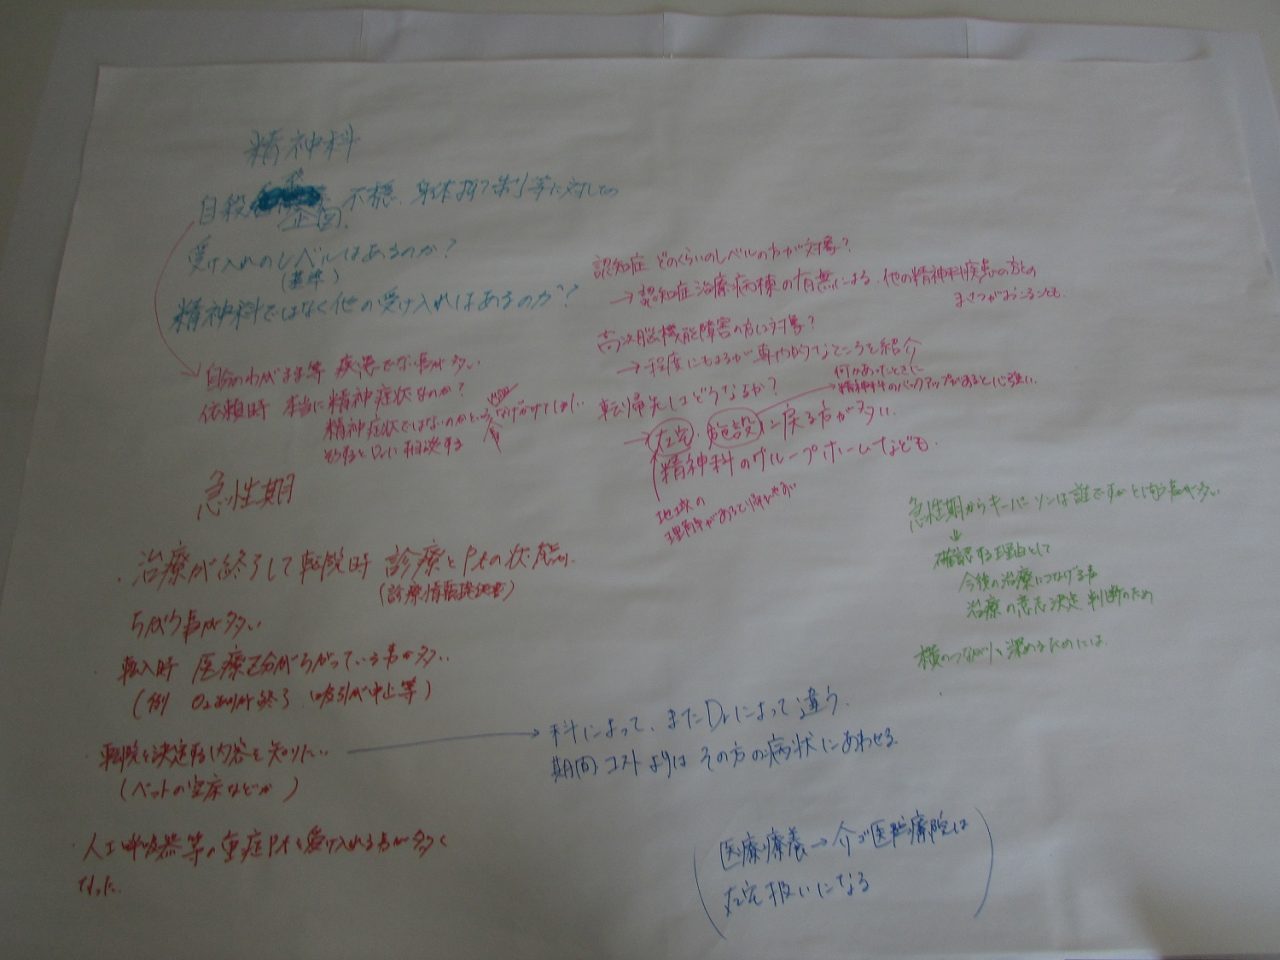 精神科
自殺企図、不穏、身体抑制等に対しての
受け入れのレベルはあるのか?
(基準)
精神科ではなく他の受け入れはあるのか?
自分のわがまま等 疾患でない事が多い
依頼時 本当に精神症状なのか?
精神症状ではないのかという
つなげかけてほしい
Drに相談する
認知症 どのくらいのレベルの方が対象?
→認知症治療病棟の有無による、他の精神科疾患の方との
まさつがおこることも
高次脳機能障害の方は対象?
→程度にもよるが専門的なところを紹介
転帰先はどうなるか?
何かあったときに
精神科のバックアップがあると心強い
→在宅、施設に戻る方が多い
精神科のグループホームなども
地域の
理解があると
急性期
・治療が終了して転院時 診療とPtの状態が
(診療情報提供書)
ちがう事が多い
・転入時 医療区分がちがっている事が多い
(例 O₂ 終了 吸引が中止等)
・転院を決定する内容を知りたい
(ベットの空床などか)
→科によって、またDrによって違う
期間コストよりは その方の病状にあわせる
・人工呼吸器等の重症Ptを受け入れる事が多く
なった
急性期からキーパーソンは誰ですかと問う事が多い
↓
確認する理由として
今後の治療につなげる為
治療の意志決定 判断のため
横のつながりを深めるためには
(医療療養→介護医療院は
在宅扱いになる)